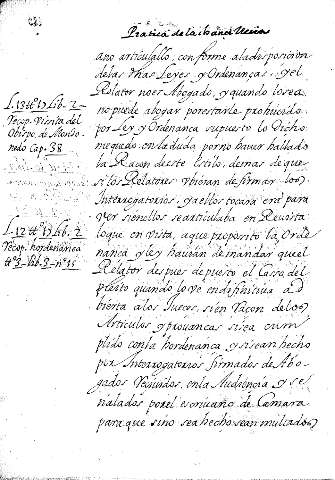 Pratica de la chança Ucina
ano articulallo, conforme aladosposicion
delas dhas Leyes, y Ordenanças, y el
Relator no es Abogado, y quando lo sea
no puede abogar porestarle prohiuido
por Ley y Ordenanca supuesto lo Dicho
me quedo, en la duda por no hauer hallado
la Raçon de este Estilo; demas de que
si los Relatores ubieran de firmar los
Interrogatorios, y a ellos tocara
ver si en ellos se articulaba en Reuista
lo que en vista, a que proposito la Orde
nança y ley hauian de mandar que el
Relator despues de puesto el Caso del
pleyto quando lo ve en difinitiua ad
bierta a los Jueces, si en raçon de los
Articulos y prouanças si sea cum
plido con la hordenanca y si sean hecho
por Interrogatorios firmados de Abo
gados Reciuidos, en la Audiencia y se
ñalados por el escriuano de Camara
para que sino sea hecho sean multados
L. 13 tt° 17 Lib. 2
Recop. Visita del
Obispo de Mondo
ñedo Cap. 38
L. 12 tt° 17 Lib. 2
Recop. hordenanca
tt° 3 Lib. 3 n° 11